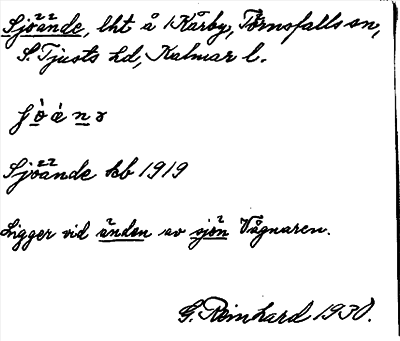 Sjöände, lht å Kårby, Törnsfalls sn,
S. Tjusts hd, Kalmar l.
Sjöände kb 1919
Ligger vid änden av sjön Vågnaren.
G. Reinhard 1930.